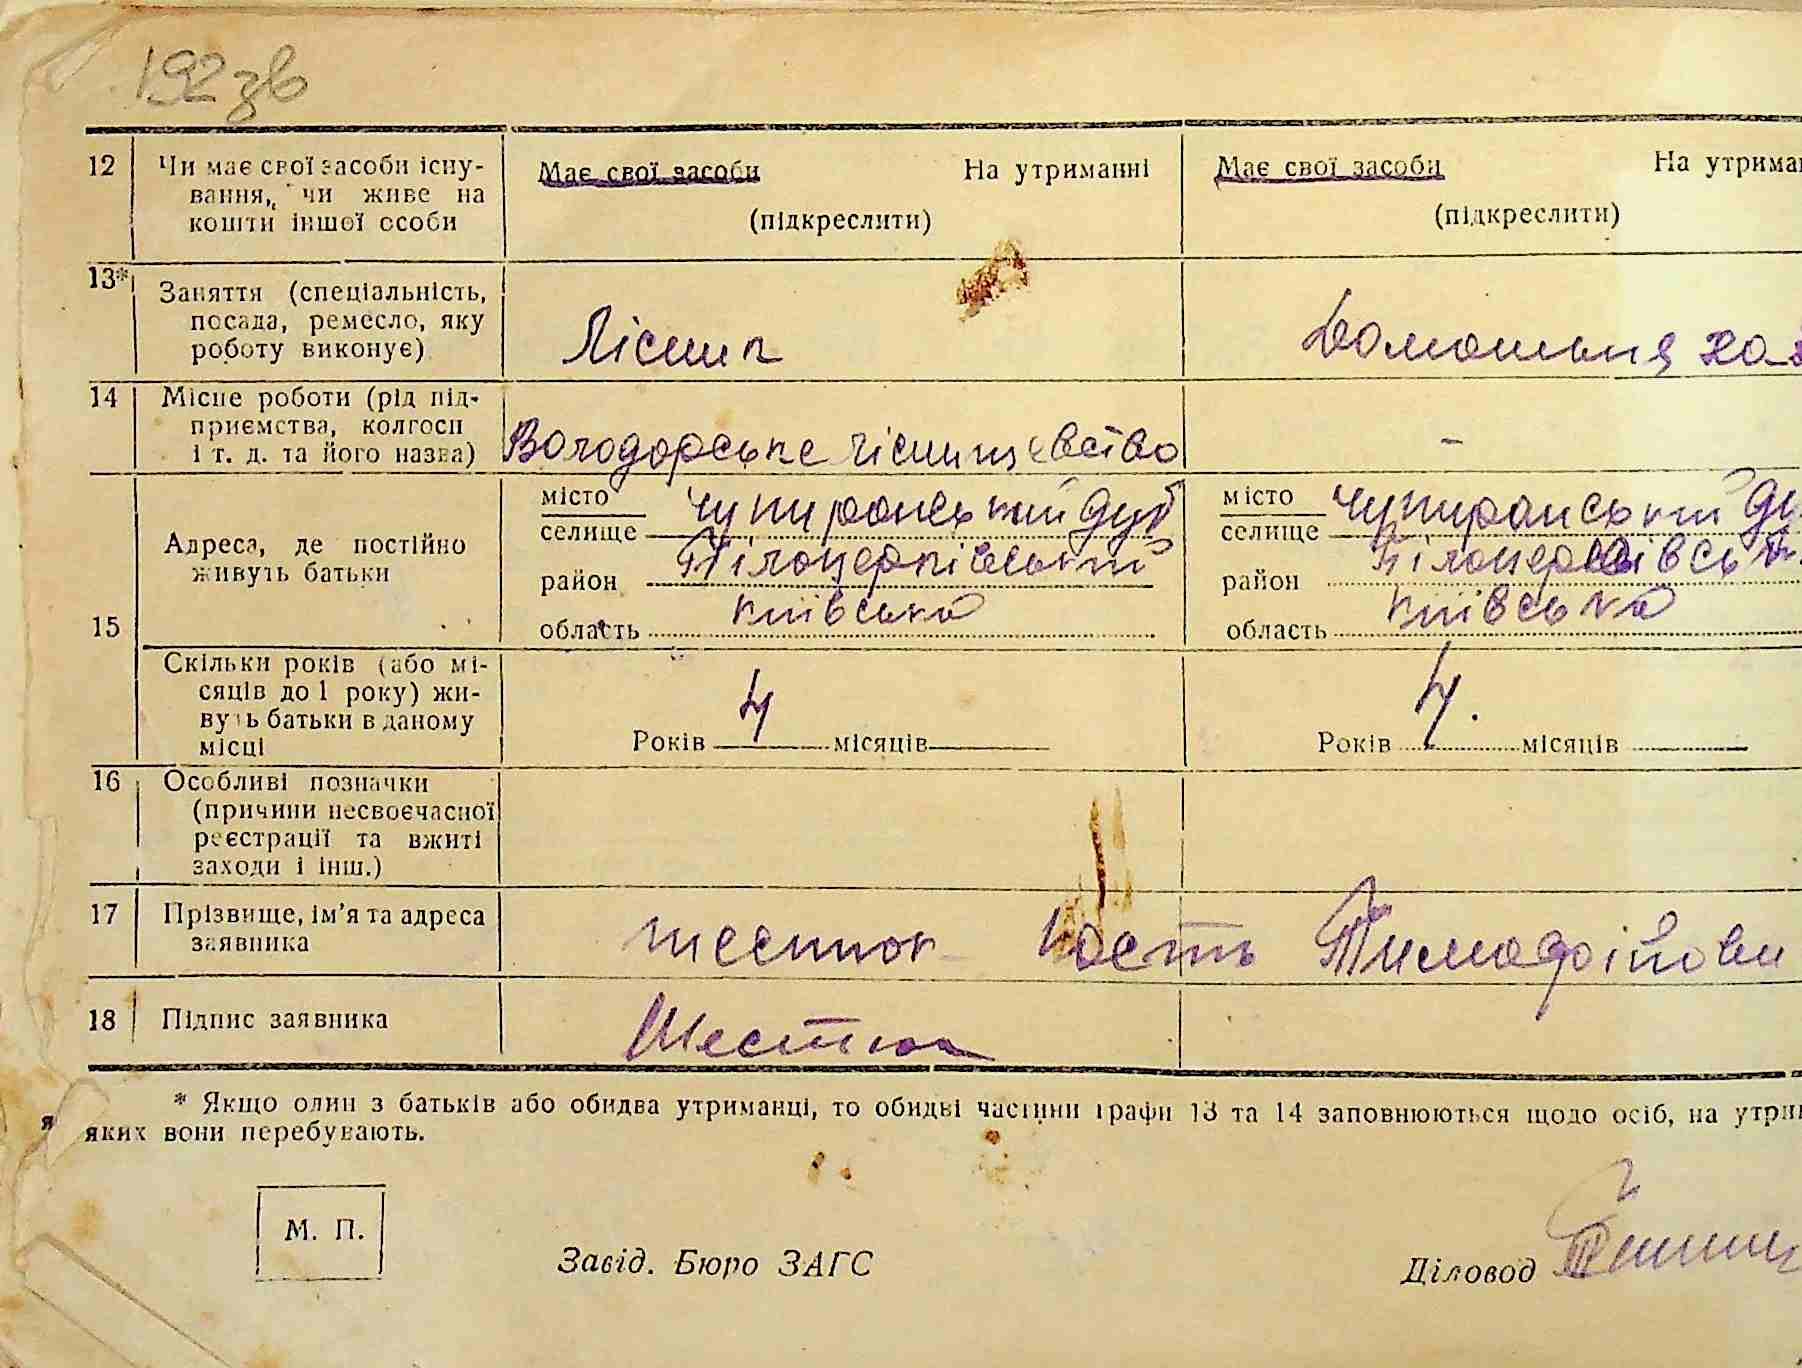 192 зв
12 Чи має свої засоби існу- Має свої засоби На утриманні Має свої засоби На утриман
вання, чи живе на
кошти іншої особи (підкреслити) (підкреслити)
13* Заняття (спеціальність,
посада, ремесло, яку
роботу виконує) Лісник Домошьня хаз
14 Місце роботи (рід під-
приємства, колгосп
і т. д. та його назва) Володорське лісництвство –
15 Адреса, де постійно
живуть батьки
місто Чупиранський дуб місто Чупиранський ду
селище селище
район Білоцерківський район Білоцерківськ
область київська область київська
Скільки років (або мі-
сяців до 1 року) жи-
вуть батьки в даному
місці Років 4 місяців Років 4. місяців
16 Особливі позначки
(причини несвоєчасної
реєстрації та вжиті
заходи і інш.)
17 Прізвище, ім'я та адреса
заявника шестюк кость Тимофійови
18 Підпис заявника Шестюк
* Якщо один з батьків або обидва утриманці, то обидві частини графи 13 та 14 заповнюються щодо осіб, на утрим
яких вони перебувають.
М. П.
Завід. Бюро ЗАГС Діловод